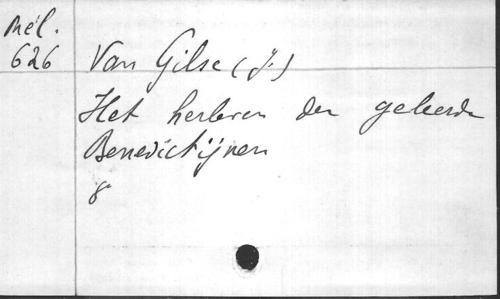 Mél.
626
Van Gilse (J.)
Het herleven der geleerde
Benedictijnen
8°